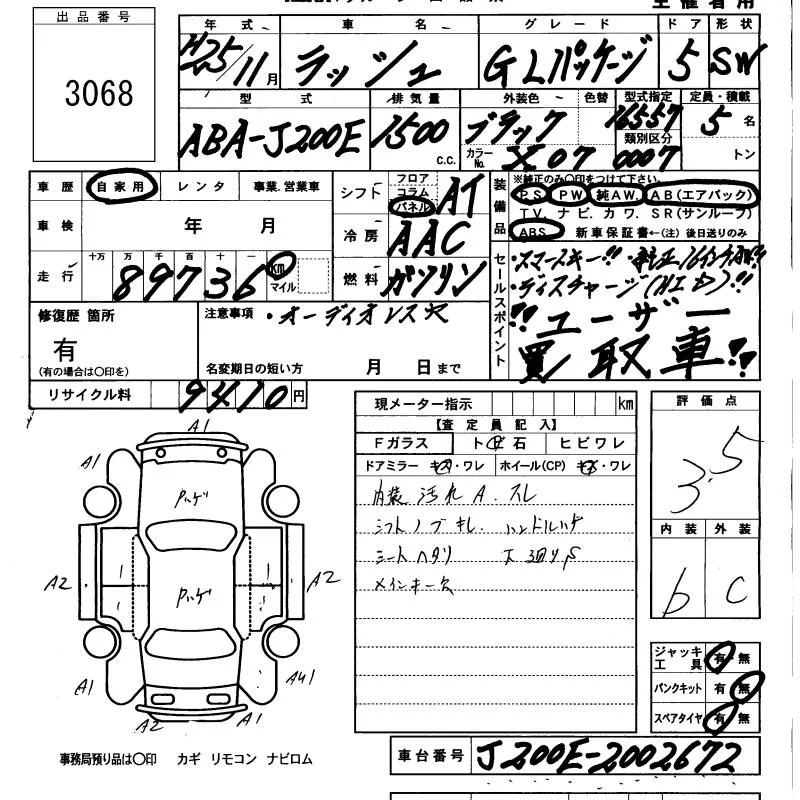 出品番号
3068
年式 車名 グレード ドア 形状
H25/11月 ラッシュ GLパッケージ 5 SW
型式 排気量 外装色 色替 型式指定 定員・積載
ABA-J200E 1500 C.C. ブラック 16557 5名
カラーNo. X07 類別区分 0007 トン
車歴 自家用 レンタ 事業.営業車
シフト フロア コラム パネル AT
装備品 ※純正のみ〇印をつけて下さい。
PS PW 純AW. AB(エアバック)
TV. ナビ. カワ. SR(サンルーフ)
ABS 新車保証書←(注) 後日送りのみ
車検 年 月
冷房 AAC
走行 十万 万 千 百 十 一
89736 km マイル
燃料 ガソリン
セールスポイント
・スマートキー!! ・純正16インチAW!!
・ディスチャージ(HID)!!
!!ユーザー
買取車!!
修復歴 箇所
有
(有の場合は〇印を)
注意事項 ・オーディオレス穴
名変期日の短い方 月 日まで
リサイクル料 9410円
現メーター指示 km
【査定員記入】
Fガラス ト 石 ヒビワレ
ドアミラー キズ・ワレ ホイール(CP) キズ・ワレ
内装 汚れ A. スレ
シフトノブキレ. ハンドルハゲ
シートヘタリ 下廻りS
メインキー欠
評価点
3.5
内装 外装
b C
ジャッキ工具 有・無
パンクキット 有 無
スペアタイヤ 有・無
A1
A1
A1
Pハゲ
A2
A2
Pハゲ
A1
A41
A2
A1
事務局預り品は〇印 カギ リモコン ナビロム
車台番号 J200E-2002672